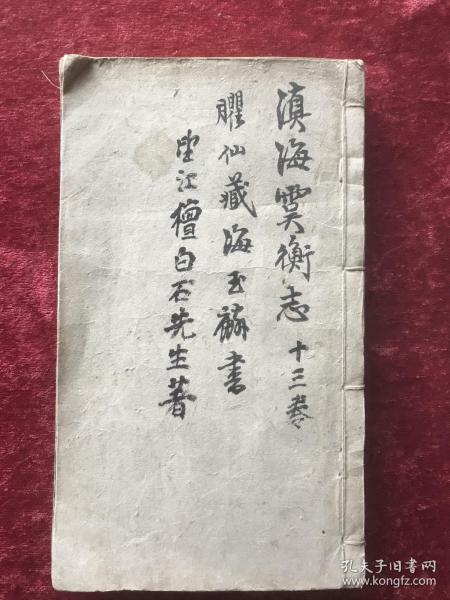 滇海虞衡志 十三卷
臞仙藏海玉麟書
望江檀白石先生著
孔夫子旧书网
www.kongfz.com